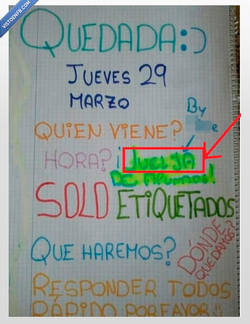 VISTOENFB.COM
QUEDADA:)
JUEVES 29
MARZO
By
QUIEN VIENE?
HORA? ¡JUELJA
DE
SOLO ETIQUETADOS
DÓNDE
QUEDAMOS?
QUE HAREMOS?
RESPONDER TODOS
RÁPIDO PORFAVOR!!